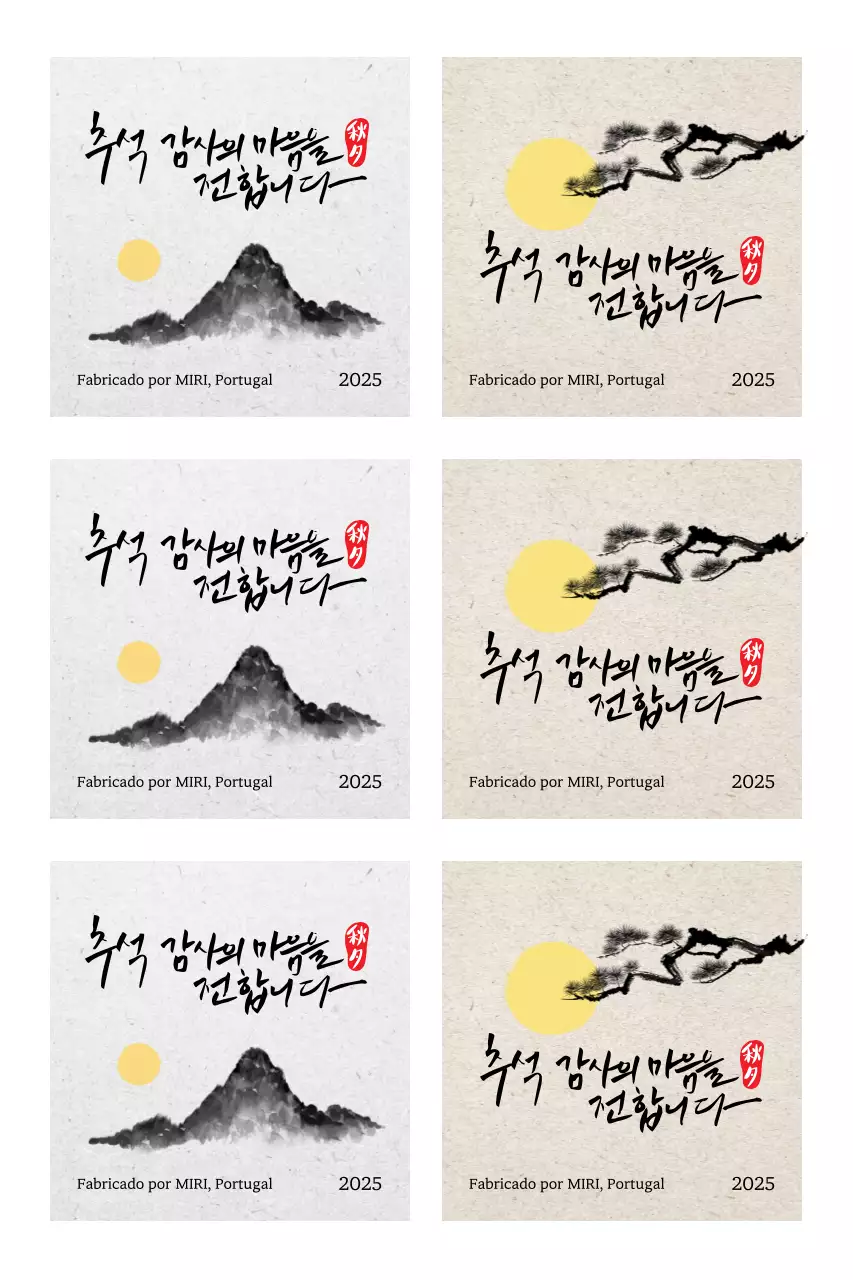 추석 감사의 마음을
전합니다
秋夕
Fabricado por MIRI, Portugal 2025
추석 감사의 마음을
전합니다
秋夕
Fabricado por MIRI, Portugal 2025
추석 감사의 마음을
전합니다
秋夕
Fabricado por MIRI, Portugal 2025
추석 감사의 마음을
전합니다
秋夕
Fabricado por MIRI, Portugal 2025
추석 감사의 마음을
전합니다
秋夕
Fabricado por MIRI, Portugal 2025
추석 감사의 마음을
전합니다
秋夕
Fabricado por MIRI, Portugal 2025